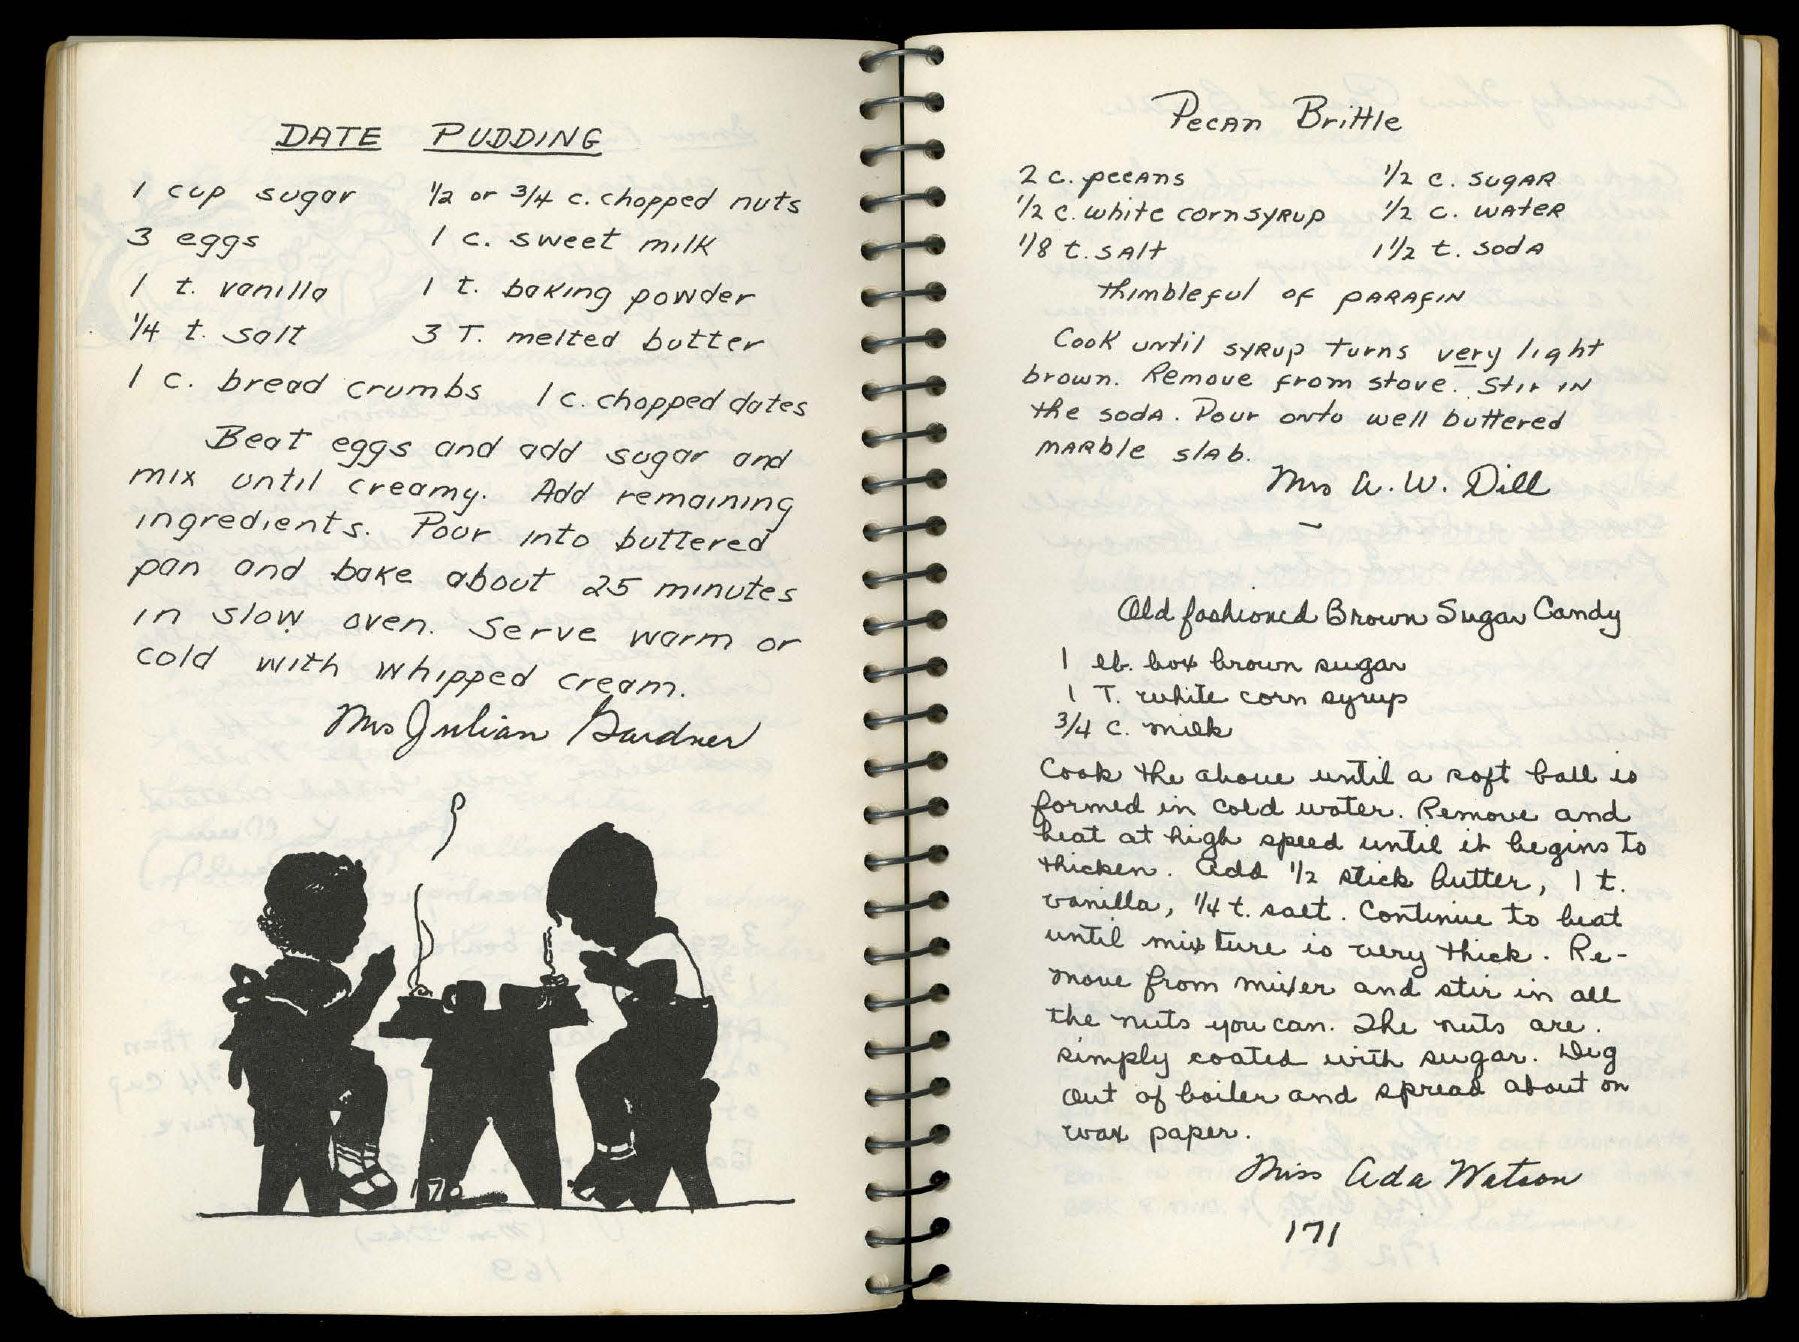 DATE PUDDING
1 cup sugar ½ or ¾ c. chopped nuts
3 eggs 1 c. sweet milk
1 t. vanilla 1 t. baking powder
¼ t. salt 3 T. melted butter
1 c. bread crumbs 1 c. chopped dates
Beat eggs and add sugar and
mix until creamy. Add remaining
ingredients. Pour into buttered
pan and bake about 25 minutes
in slow oven. Serve warm or
cold with whipped cream.
Mrs Julian Gardner
170
Pecan Brittle
2 c. pecans ½ c. sugar
½ c. white cornsyrup ½ c. water
1/8 t. salt 1½ t. soda
thimbleful of parafin
Cook until syrup turns very light
brown. Remove from stove. Stir in
the soda. Pour onto well buttered
marble slab.
Mrs A. W. Dill
Old fashioned Brown Sugar Candy
1 lb. box brown sugar
1 T. white corn syrup
¾ c. milk
Cook the above until a soft ball is
formed in cold water. Remove and
beat at high speed until it begins to
thicken. Add ½ stick butter, 1 t.
vanilla, ¼ t. salt. Continue to beat
until mixture is very thick. Re-
move from mixer and stir in all
the nuts you can. The nuts are
simply coated with sugar. Dig
out of boiler and spread about on
wax paper.
Miss Ada Watson
171